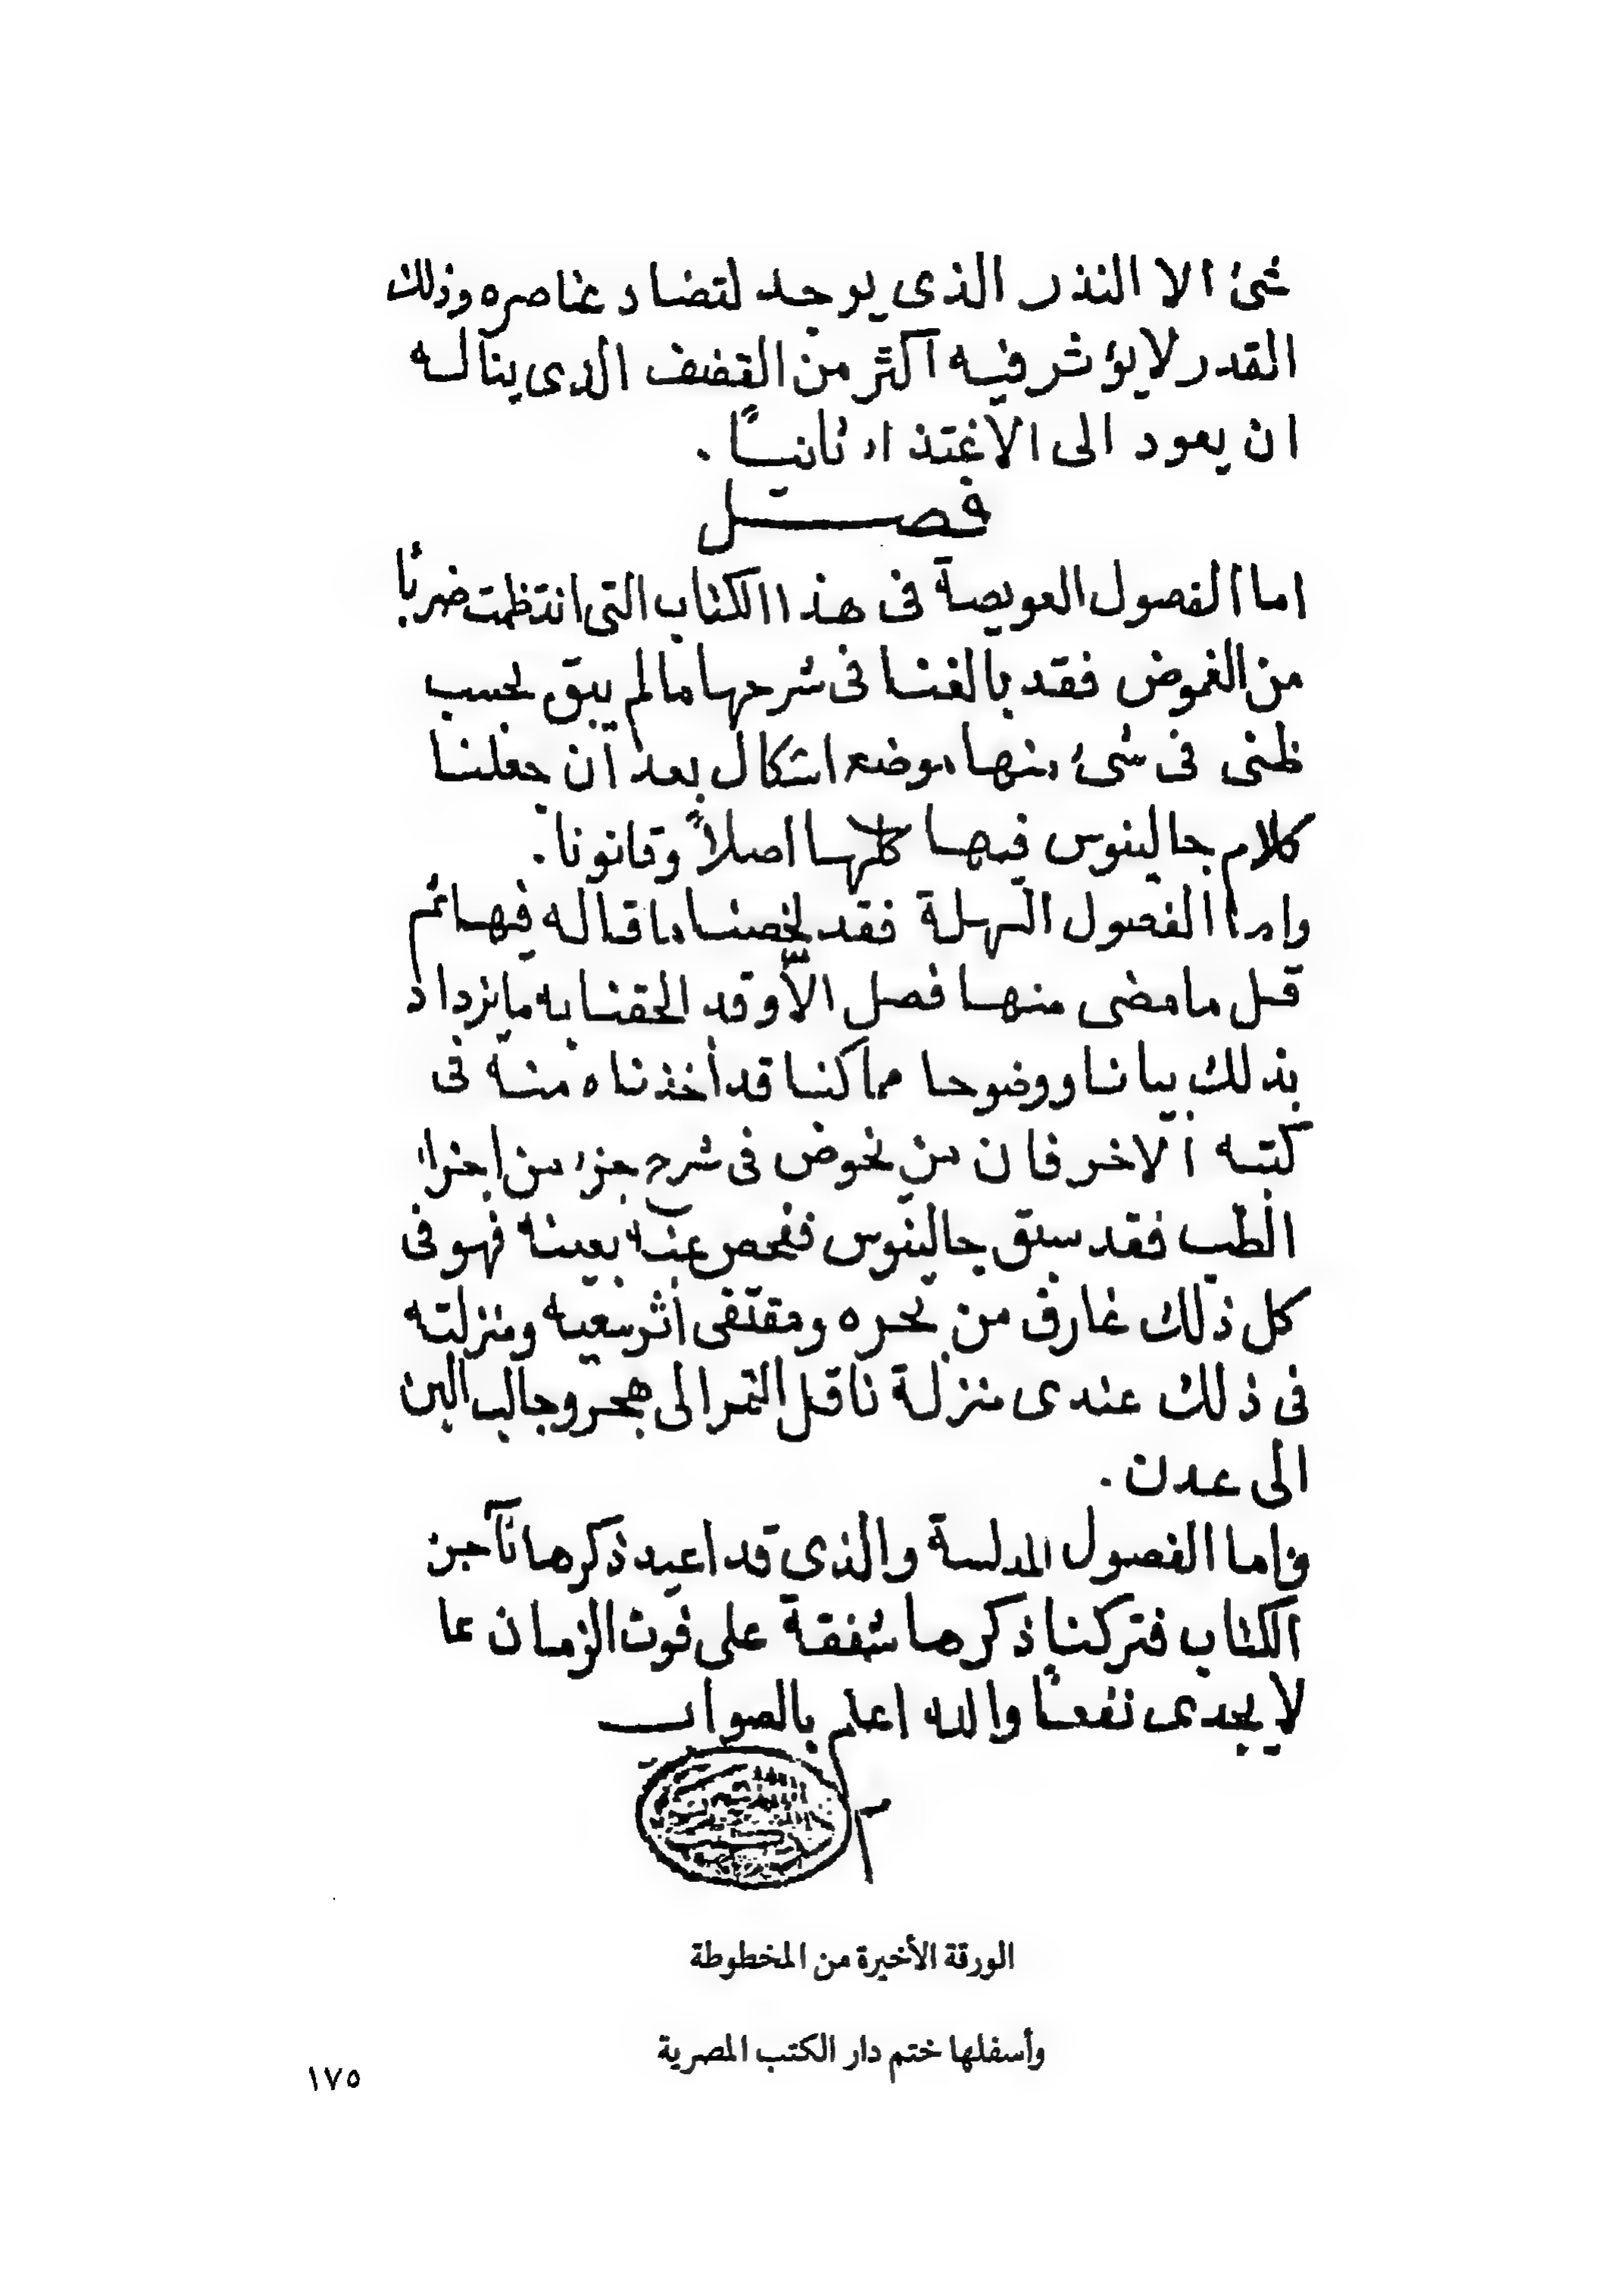 شئ الا النذر الذى يوجد لتضاد عناصره وذلك
القدر لا يؤثر فيه اكثر من القضف الدى يناله
ان يعود الى الاغتذاء ثانيـًا .
فصـل
اما الفصول العويصة فى هذا الكتاب التى انتظمت ضربًا
من الغموض فقد بالغنا فى شرحها مالم يبق بحسب
ظنى فى شئ منها موضع اشكال بعد ان جعلنا
كلام جالينوس فيها كلها اصلاً وقانونا .
واما الفصول السهلة فقد لخصنا ما قاله فيها ثم
قل ما مضى منها فصل الاّ وقد الحقنا به ما يزداد
بذلك بيانا ووضوحا مما كنا قد أخذناه منه فى
كتبه الاخر فان من يخوض فى شرح جزء من اجزاء
الطب فقد سبق جالينوس ففحص عنه بعينه فهو فى
كل ذلك غارف من بحره ومقتفى أثر سعيه ومنزلته
فى ذلك عندى منزلة ناقل التمر الى هجر وجالب البن
الى عدن .
واما الفصول المدلسة والذى قد اعيد ذكرها
الكتاب فتركنا ذكرها شفقة على فوت الزمان عما
لا يجدى نفعـًا والله اعلم بالصواب
الورقة الأخيرة من المخطوطة
وأسفلها ختم دار الكتب المصرية
١٧٥